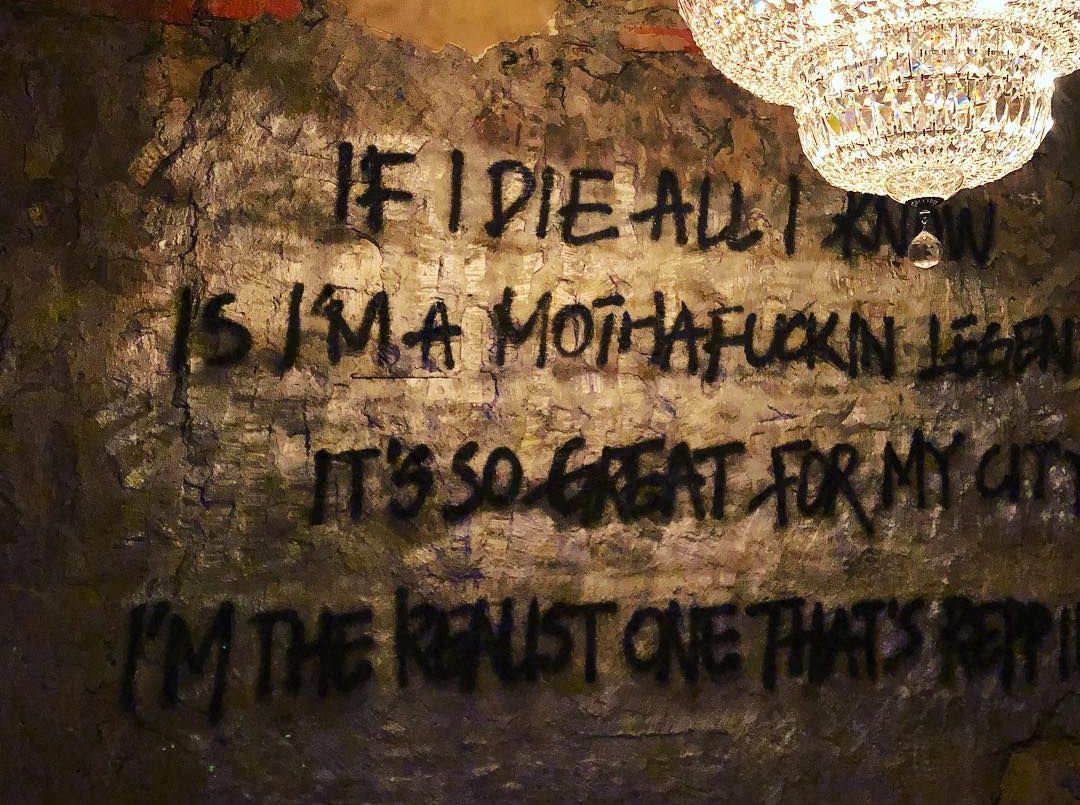 IF I DIE ALL I KNOW
IS I'M A MOTHAFUCKIN LEGEN
IT'S SO GREAT FOR MY CITY
I'M THE REALIST ONE THAT'S REPPI